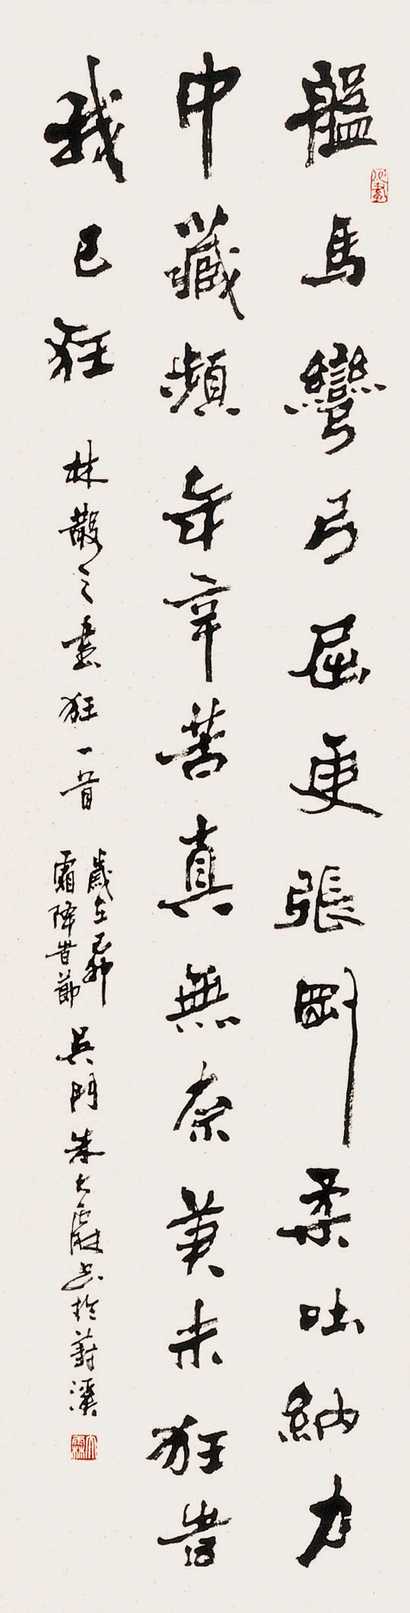 盤馬彎弓屈更張剛柔吐納力
中藏頻年辛苦真無奈筆未狂旹
我已狂
林散之書狂一首
歲在己卯
霜降旹節
吳門朱大霖書於葑溪